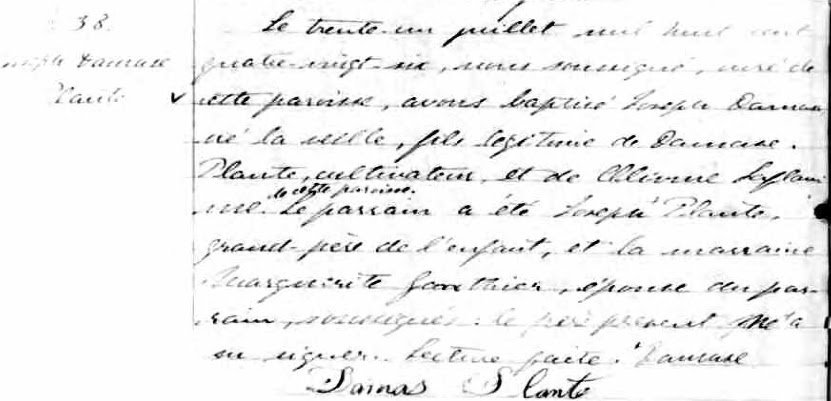 38.
Joseph Damase
Plante
Le trente-un juillet mil huit cent
quatre-vingt-six, nous soussigné, curé de
cette paroisse, avons baptisé Joseph Damase
né la veille, fils légitime de Damase
Plante, cultivateur, et de
de cette paroisse.
Le parrain a été Joseph Plante,
grand-père de l'enfant, et la marraine
Marguerite Gauthier, épouse du par-
rain, soussignés. le père présent n'a
su signer. Lecture faite. Damase
Damas Plante